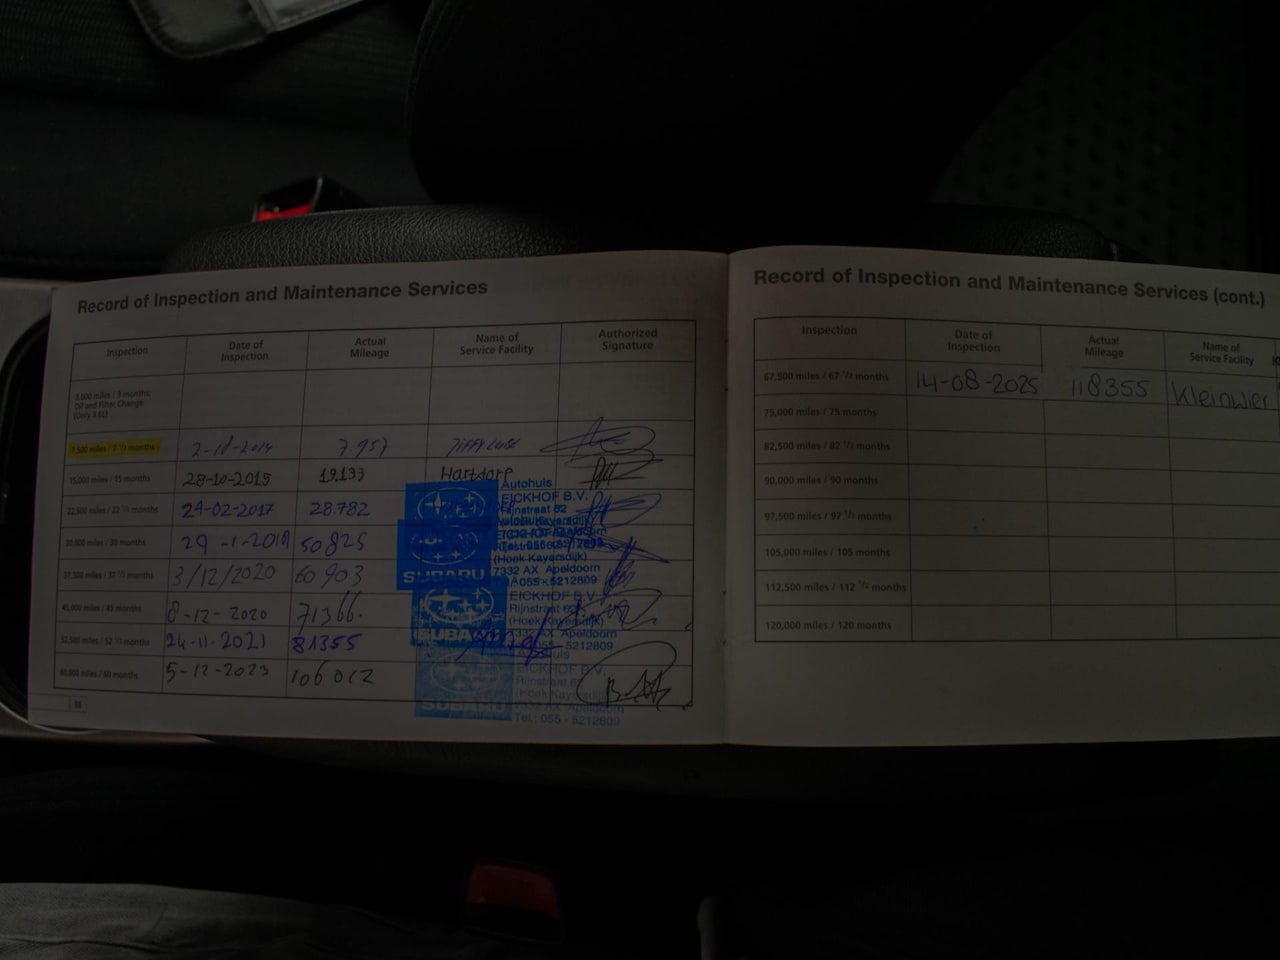 Record of Inspection and Maintenance Services
Inspection Date of Inspection Actual Mileage Name of Service Facility Authorized Signature
3,000 miles / 3 months
Oil and Filter Change
(Only 3.6L)
7,500 miles / 7 1/2 months 7.957
15,000 miles / 15 months 28-10-2015 19.133 Hartdorp
22,500 miles / 22 1/2 months 24-02-2017 28.782
30,000 miles / 30 months 29-1-2019 50825
37,500 miles / 37 1/2 months 3/12/2020 60903
45,000 miles / 45 months 8-12-2020 71366.
52,500 miles / 52 1/2 months 24-11-2021 81355
60,000 miles / 60 months 5-12-2023 106012
Autohuis
EICKHOF B.V.
Rijnstraat 62
(Hoek Kayersdijk)
7332 AX Apeldoorn
Tel.: 055 - 5212809
SUBARU
EICKHOF B.V.
Rijnstraat 62
(Hoek Kayersdijk)
7332 AX Apeldoorn
055 - 5212809
SUBARU
EICKHOF B.V.
Rijnstraat 62
(Hoek Kayersdijk)
7332 AX Apeldoorn
Tel.: 055 - 5212809
SUBARU
Record of Inspection and Maintenance Services (cont.)
Inspection Date of Inspection Actual Mileage Name of Service Facility
67,500 miles / 67 1/2 months 14-08-2025 118355 Kleinwier
75,000 miles / 75 months
82,500 miles / 82 1/2 months
90,000 miles / 90 months
97,500 miles / 97 1/2 months
105,000 miles / 105 months
112,500 miles / 112 1/2 months
120,000 miles / 120 months